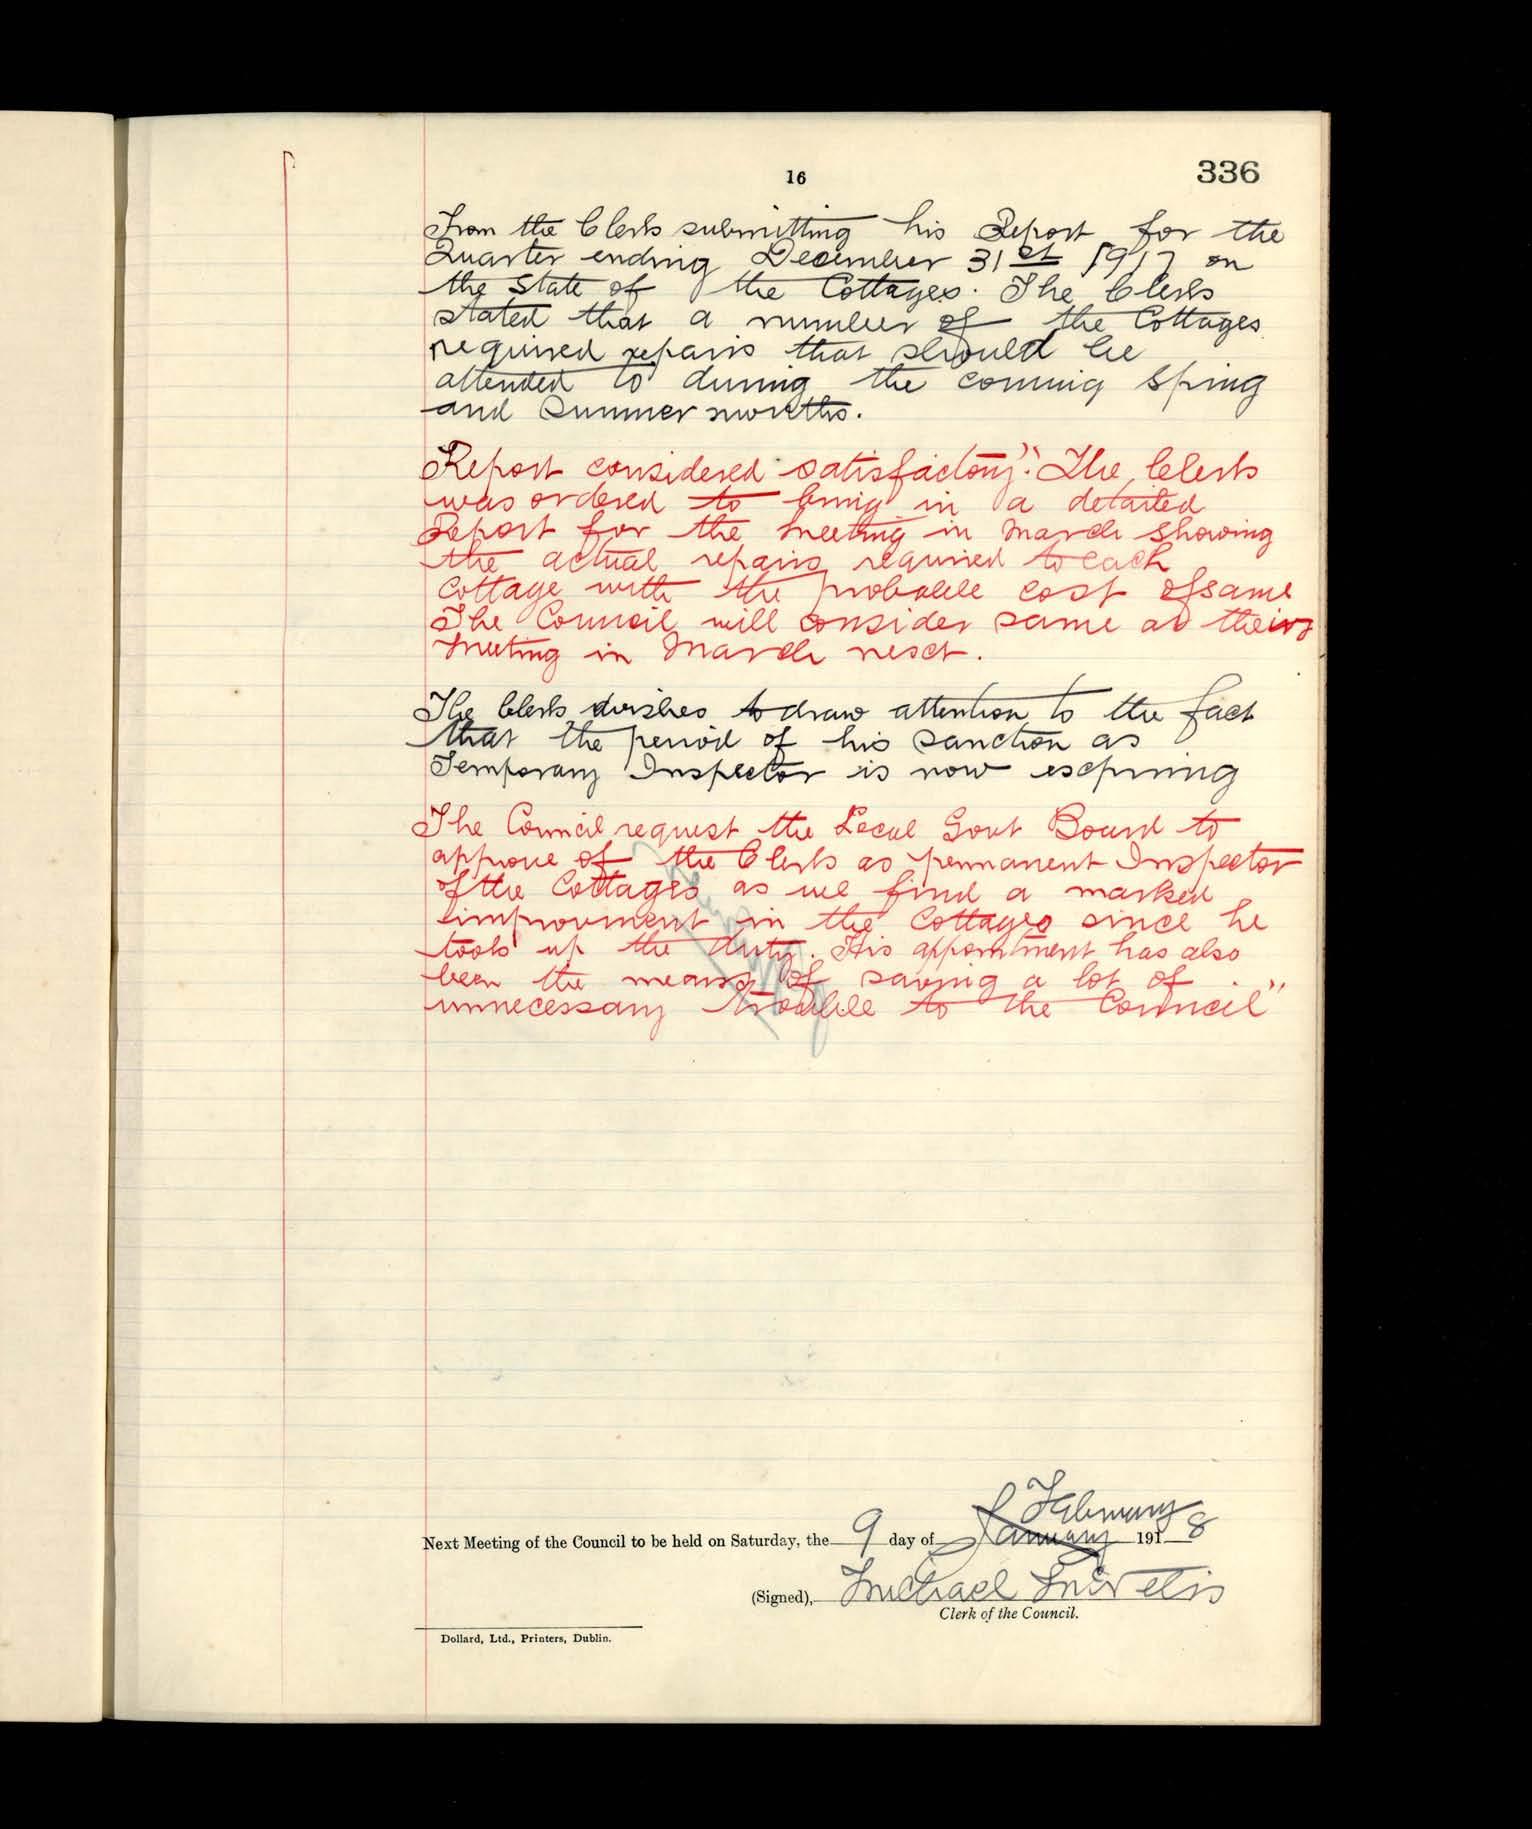 16
336
From the Clerk submitting his Report for the
Quarter ending December 31st 1917 on
the State of the Cottages. The Clerk
stated that a number of the Cottages
required repairs that should be
attended to during the coming Spring
and Summer months.
Report considered satisfactory". The Clerk
was ordered to bring in a detailed
Report for the meeting in March showing
the actual repairs required to each
Cottage with the probable cost of same
The Council will consider same at their
meeting in March next.
The Clerk wishes to draw attention to the fact
that the period of his sanction as
Temporary Inspector is now expiring
The Council request the Local Govt Board to
approve of the Clerk as permanent Inspector
of the Cottages as we find a marked
improvment in the Cottages since he
took up the duty. His appointment has also
been the means of saving a lot of
unnecessary trouble to the Council"
February
Next Meeting of the Council to be held on Saturday, the 9 day of January 1918
(Signed), Michael
Clerk of the Council.
Dollard, Ltd., Printers, Dublin.